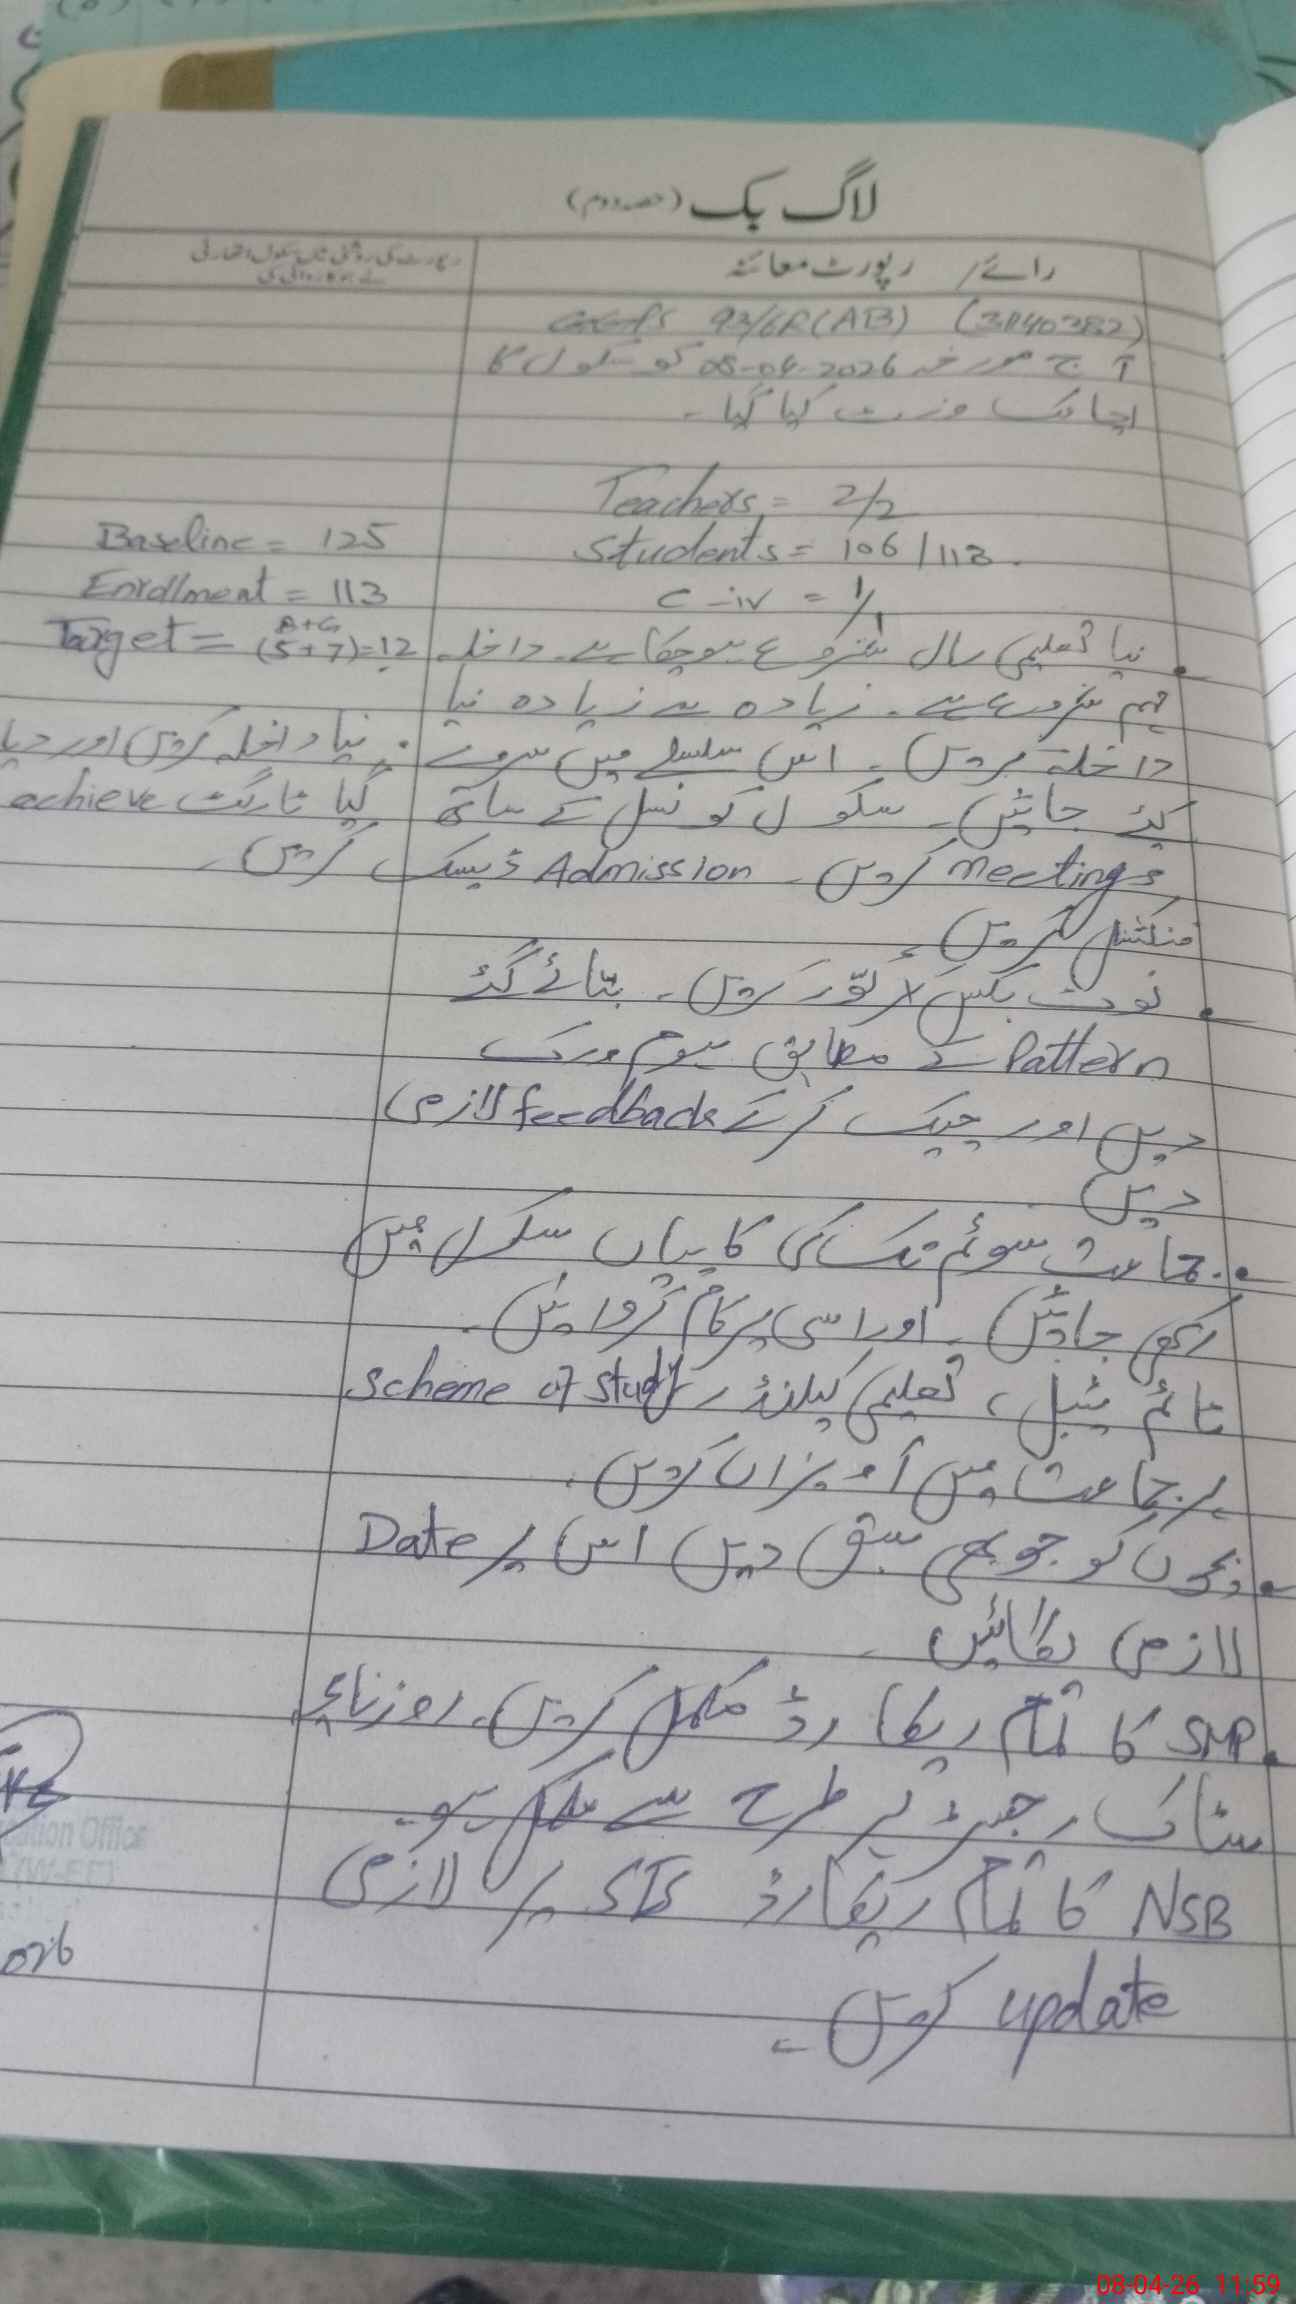 لاگ بک (حصہ دوم)
رائے/ رپورٹ معائنہ
رپورٹ کی روشنی میں سکول اتھارٹی
نے جو کاروائی کی
GGPS 93/6R(AB) (31140382)
آج مورخہ 08-04-2026 کو سکول کا
اچانک وزٹ کیا گیا۔
Teachers = 2/2
Students = 106/113.
C-iv = 1/1
Baseline = 125
Enrollment = 113
B+G
Target = (5+7)=12
• نیا تعلیمی سال شروع ہوچکا ہے۔ داخلہ
مہم شروع ہے۔ زیادہ سے زیادہ نیا
داخلہ کریں۔ اس سلسلے میں سروے
کیے جائیں۔ سکول کونسل کے ساتھ
meetings کریں۔ Admission ڈیسک
فنکشنل کریں۔
• نیا داخلہ کریں اور دیا
گیا ٹارگٹ achieve
کریں۔
• نوٹ بکس کور کریں۔ بتائے گئے
Pattern کے مطابق ہوم ورک
دیں اور چیک کرکے feedback لازمی
دیں
• جماعت سوئم تک کی کاپیاں سکول میں
رکھی جائیں۔ اور اسی پر کام کروائیں۔
ٹائم ٹیبل، تعلیمی کیلنڈر، Scheme of study
ہر جماعت میں آویزاں کریں۔
• بچوں کو جو بھی سبق دیں اس پر Date
لازمی لگائیں۔
• SMP کا تمام ریکارڈ مکمل کریں۔ روزنامچہ
سٹاک رجسٹر ہر طرح سے مکمل ہو۔
NSB کا تمام ریکارڈ SIS پر لازمی
update کریں۔
ation Officer
(W-EE)
026
08-04-26 11:59